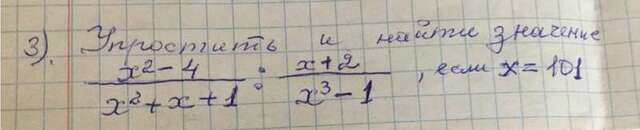 3). Упростить и найти значение
x² - 4 / x² + x + 1 : x + 2 / x³ - 1 , если x = 101